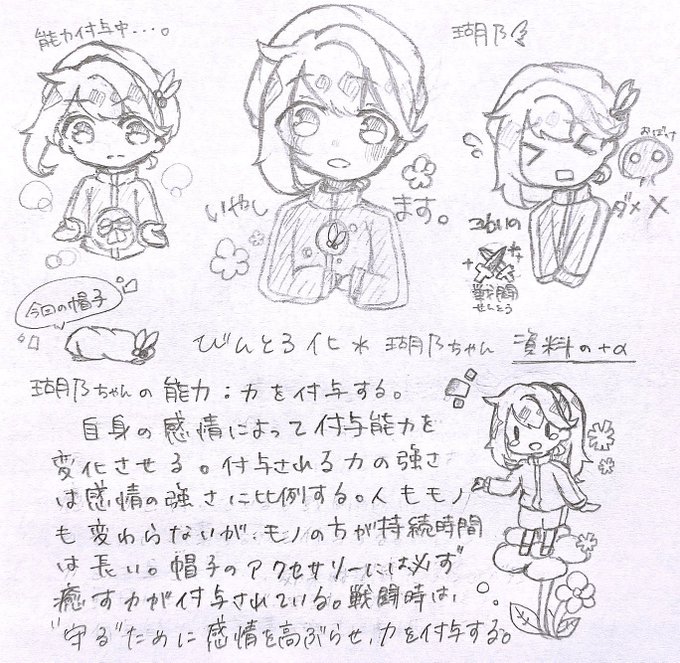 能力付与中・・・。
瑚乃
いやし
ます。
おばけ
ダメ×
こわいの
戦闘
せんとう
今回の帽子
びんとろ化* 瑚乃ちゃん 資料の+α
瑚乃ちゃんの能力:力を付与する。
自身の感情によって付与能力を
変化させる。付与される力の強さ
は感情の強さに比例する。人もモノ
も変わらないが、モノの方が持続時間
は長い。帽子のアクセサリーには必ず
癒す力が付与されている。戦闘時は、
"守る"ために感情を高ぶらせ、力を付与する。